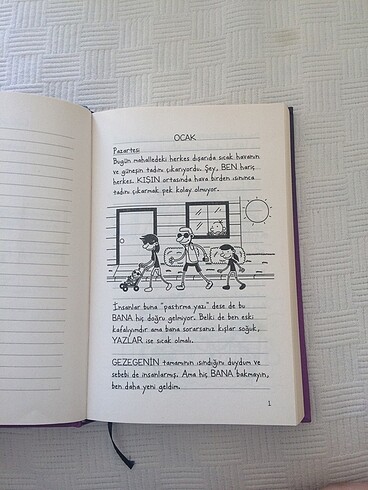 OCAK
Pazartesi
Bugün mahalledeki herkes dışarıda sıcak havanın
ve güneşin tadını çıkarıyordu. Şey, BEN hariç
herkes. KIŞIN ortasında hava birden ısınınca
tadını çıkarmak pek kolay olmuyor.
İnsanlar buna "pastırma yazı" dese de bu
BANA hiç doğru gelmiyor. Belki de ben eski
kafalıyımdır ama bana sorarsanız kışlar soğuk,
YAZLAR ise sıcak olmalı.
GEZEGENİN tamamının ısındığını duydum ve
sebebi de insanlarmış. Ama hiç BANA bakmayın,
ben daha yeni geldim.
1